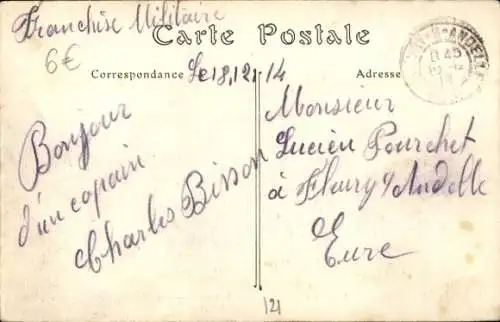 Franchise Militaire
6€
Carte Postale
Correspondance
Le 18,12,14
Adresse
Bonjour
d'un copain
Charles Bisson
Monsieur
Lucien Pourchet
à Fleury s/Andelle
Eure
121